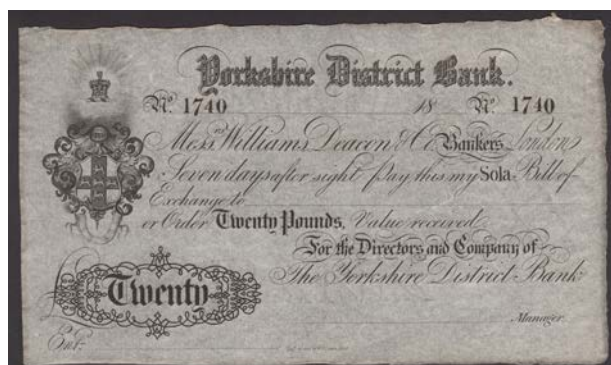 Yorkshire District Bank.
No. 1740 18 No. 1740
Messrs Williams Deacon & Co. Bankers London
Seven days after sight Pay this my Sola Bill of
Exchange to
or Order Twenty Pounds, Value received
For the Directors and Company of
The Yorkshire District Bank
£ Twenty
Manager.
Entd.